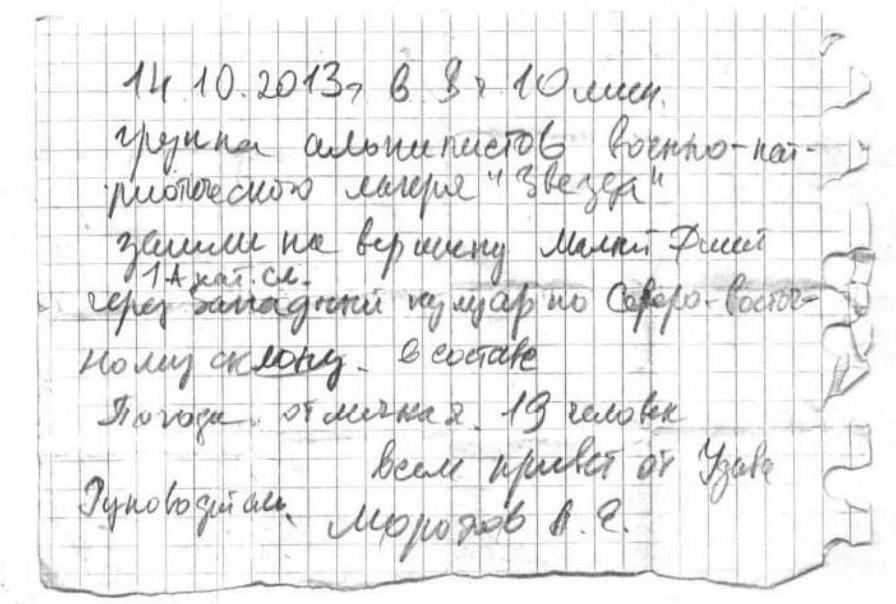 14.10.2013г в 8ч 10 мин.
группа альпинистов военно-пат-
риотического лагеря "Звезда"
зашли на вершину Малый
1А кат. сл.
через Западный кулуар по Северо-Восточ-
ному склону. в составе
Погода отличная. 19 человек
всем привет от
Руководитель. Морозов А. Е.